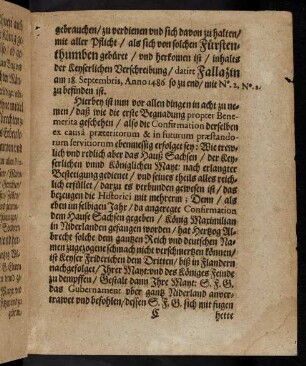 gebrauchen / zu verdienen vnd sich davon zu halten /
mit aller Pflicht / als sich von solchen Fürsten-
thumben gebüret / vnd herkomen ist / inhalts
der Keyserlichen Verschreibung / datirt Fallazin
am 18. Septembris, Anno 1486. so zu end / mit Nº. 2. Nº. 2.
zu befinden ist.
Hierbey ist nun vor allen dingen in acht zu ne-
men / daß wie die erste Begnadung propter Bene-
merita geschehen / also die Confirmation derselben
ex causa præteritorum & in futurum præstando-
rum servitiorum ebenmessig erfolget sey: Wie trew-
lich vnd redlich aber das Hauß Sachsen / der Key-
serlichen vnnd Königlichen Mayt: nach erlangter
Bestetigung gedienet / vnd seines theils alles reich-
lich erfüllet / darzu es verbunden gewesen ist / das
bezeugen die Historici mit mehrerm: Denn / als
eben im selbigen Jahr / da angeregte Confirmation
dem Hause Sachsen gegeben / König Maximilian
in Niderlanden gefangen worden / hat Hertzog Al-
brecht solche dem gantzen Reich vnd deutschen Na-
men zugezogene schmach nicht verschmertzen können /
ist Keyser Friderichen dem Dritten / biß in Flandern
nachgefolget / Ihrer Mayt: vnd des Königes Feinde
zu dempffen / Gestalt dann Ihre Mayt: S. F. G.
das Gubernament vber gantz Niderland anver-
trawet vnd befohlen / dessen S. F. G. sich mit fugen
C hette